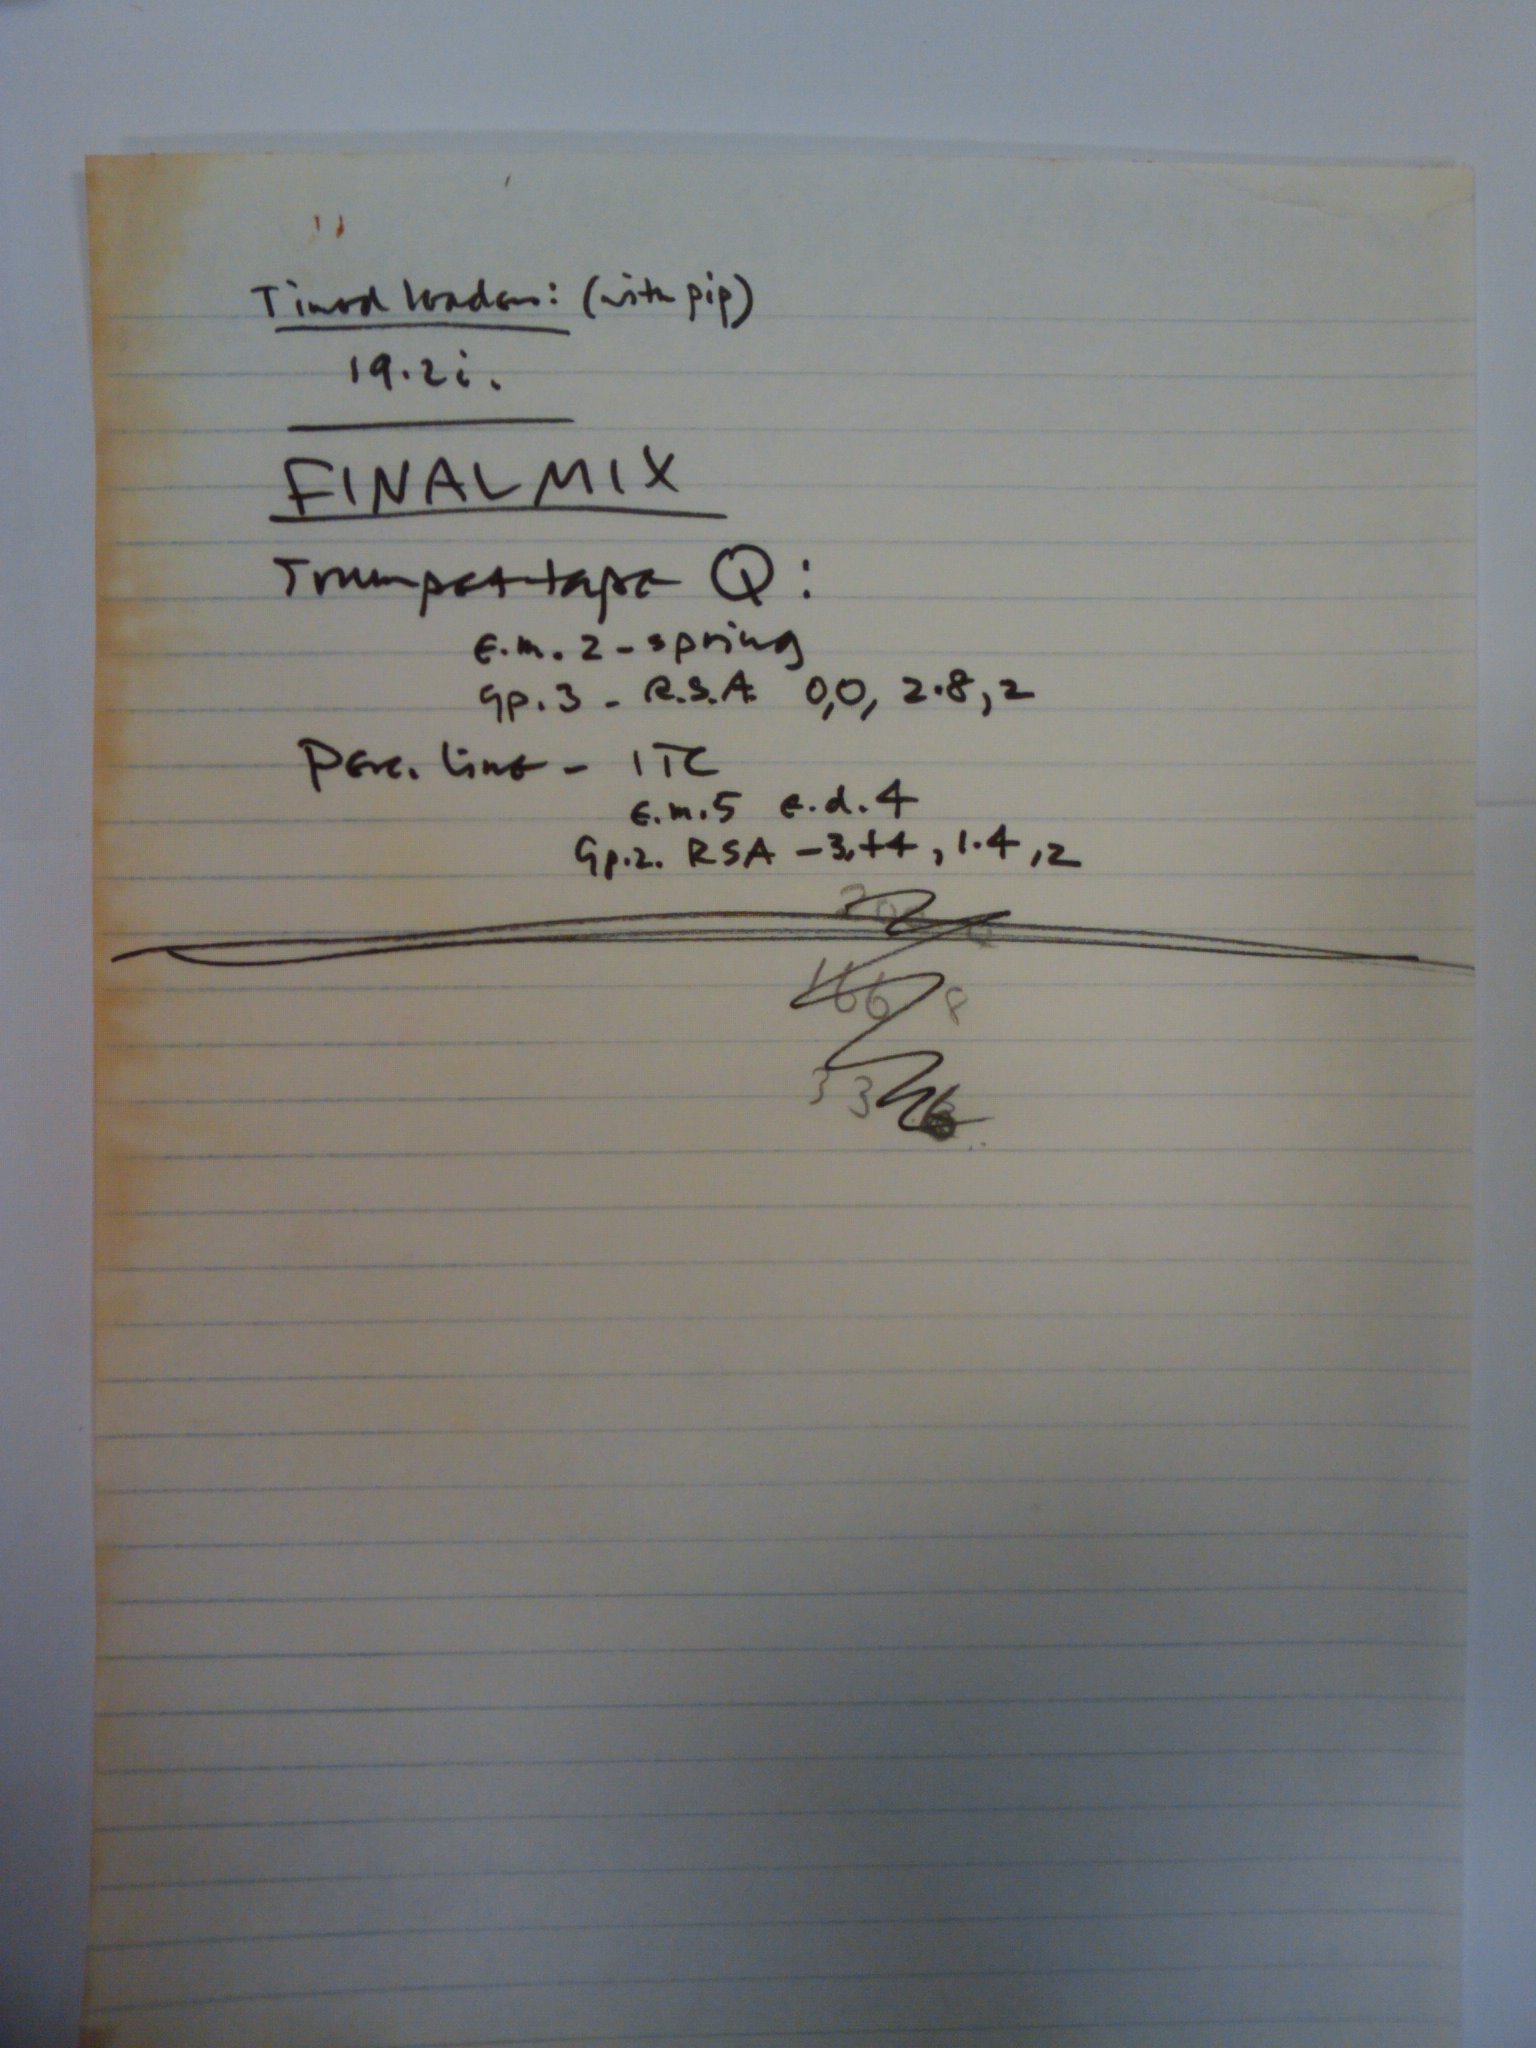 Timed leaders: (with pip)
19.2i.
FINAL MIX
Trumpet tape Q:
e.m. 2 - spring
Gp. 3 - R.S.A. 0,0, 2.8, 2
Perc. line - ITC
e.m. 5 e.d. 4
Gp. 2. RSA -3, +4, 1.4, 2
166 8
3 3